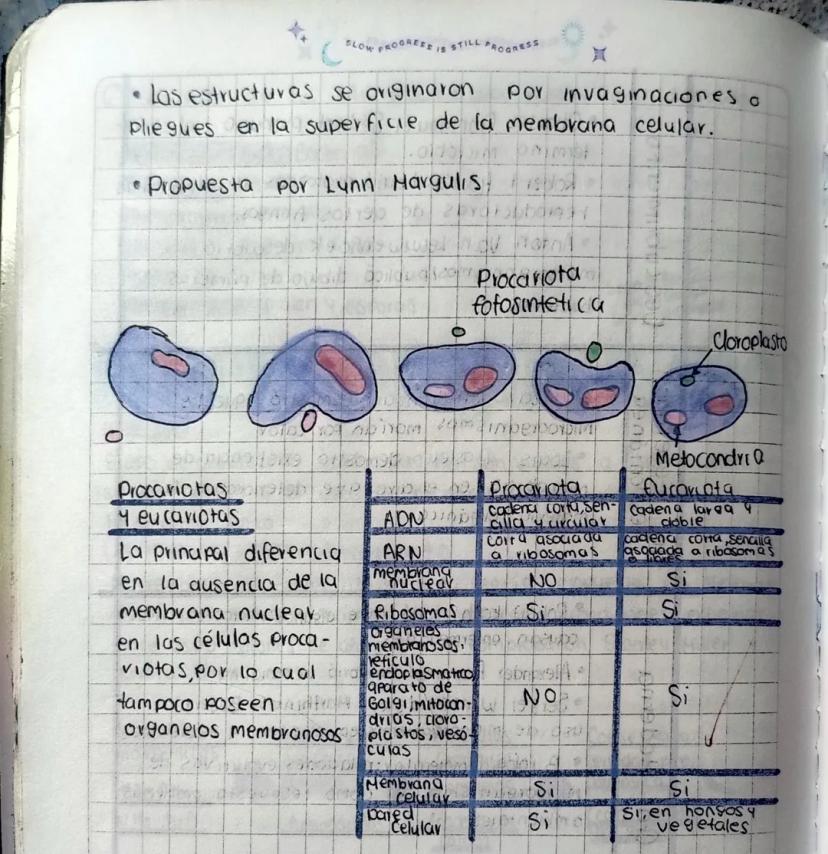 SLOW PROGRESS IS STILL PROGRESS
• Las estructuras se originaron por invaginaciones o
pliegues en la superficie de la membrana celular.
• Propuesta por Lynn Margulis.
Procariota
fotosintetica
Cloroplasto
Metocondria
Procariotas
y eucariotas
La principal diferencia
en la ausencia de la
membrana nuclear
en las células proca-
riotas, por lo cual
tampoco poseen
organelos membranosos
Procariota Eucariota
ADN cadena corta, sen-
cilla y circular cadena larga y
doble
ARN corta asociada
a ribosomas cadena corta, sencilla
asociada a ribosomas
o libres
membrana
nuclear NO Si
Ribosomas Si Si
Organelos
membranosos:
retículo
endoplasmatico,
aparato de
Golgi, mitocon-
drias, cloro-
plastos, vesí-
culas NO Si
Membrana
celular Si Si
Pared
celular Si Si, en hongos y
vegetales